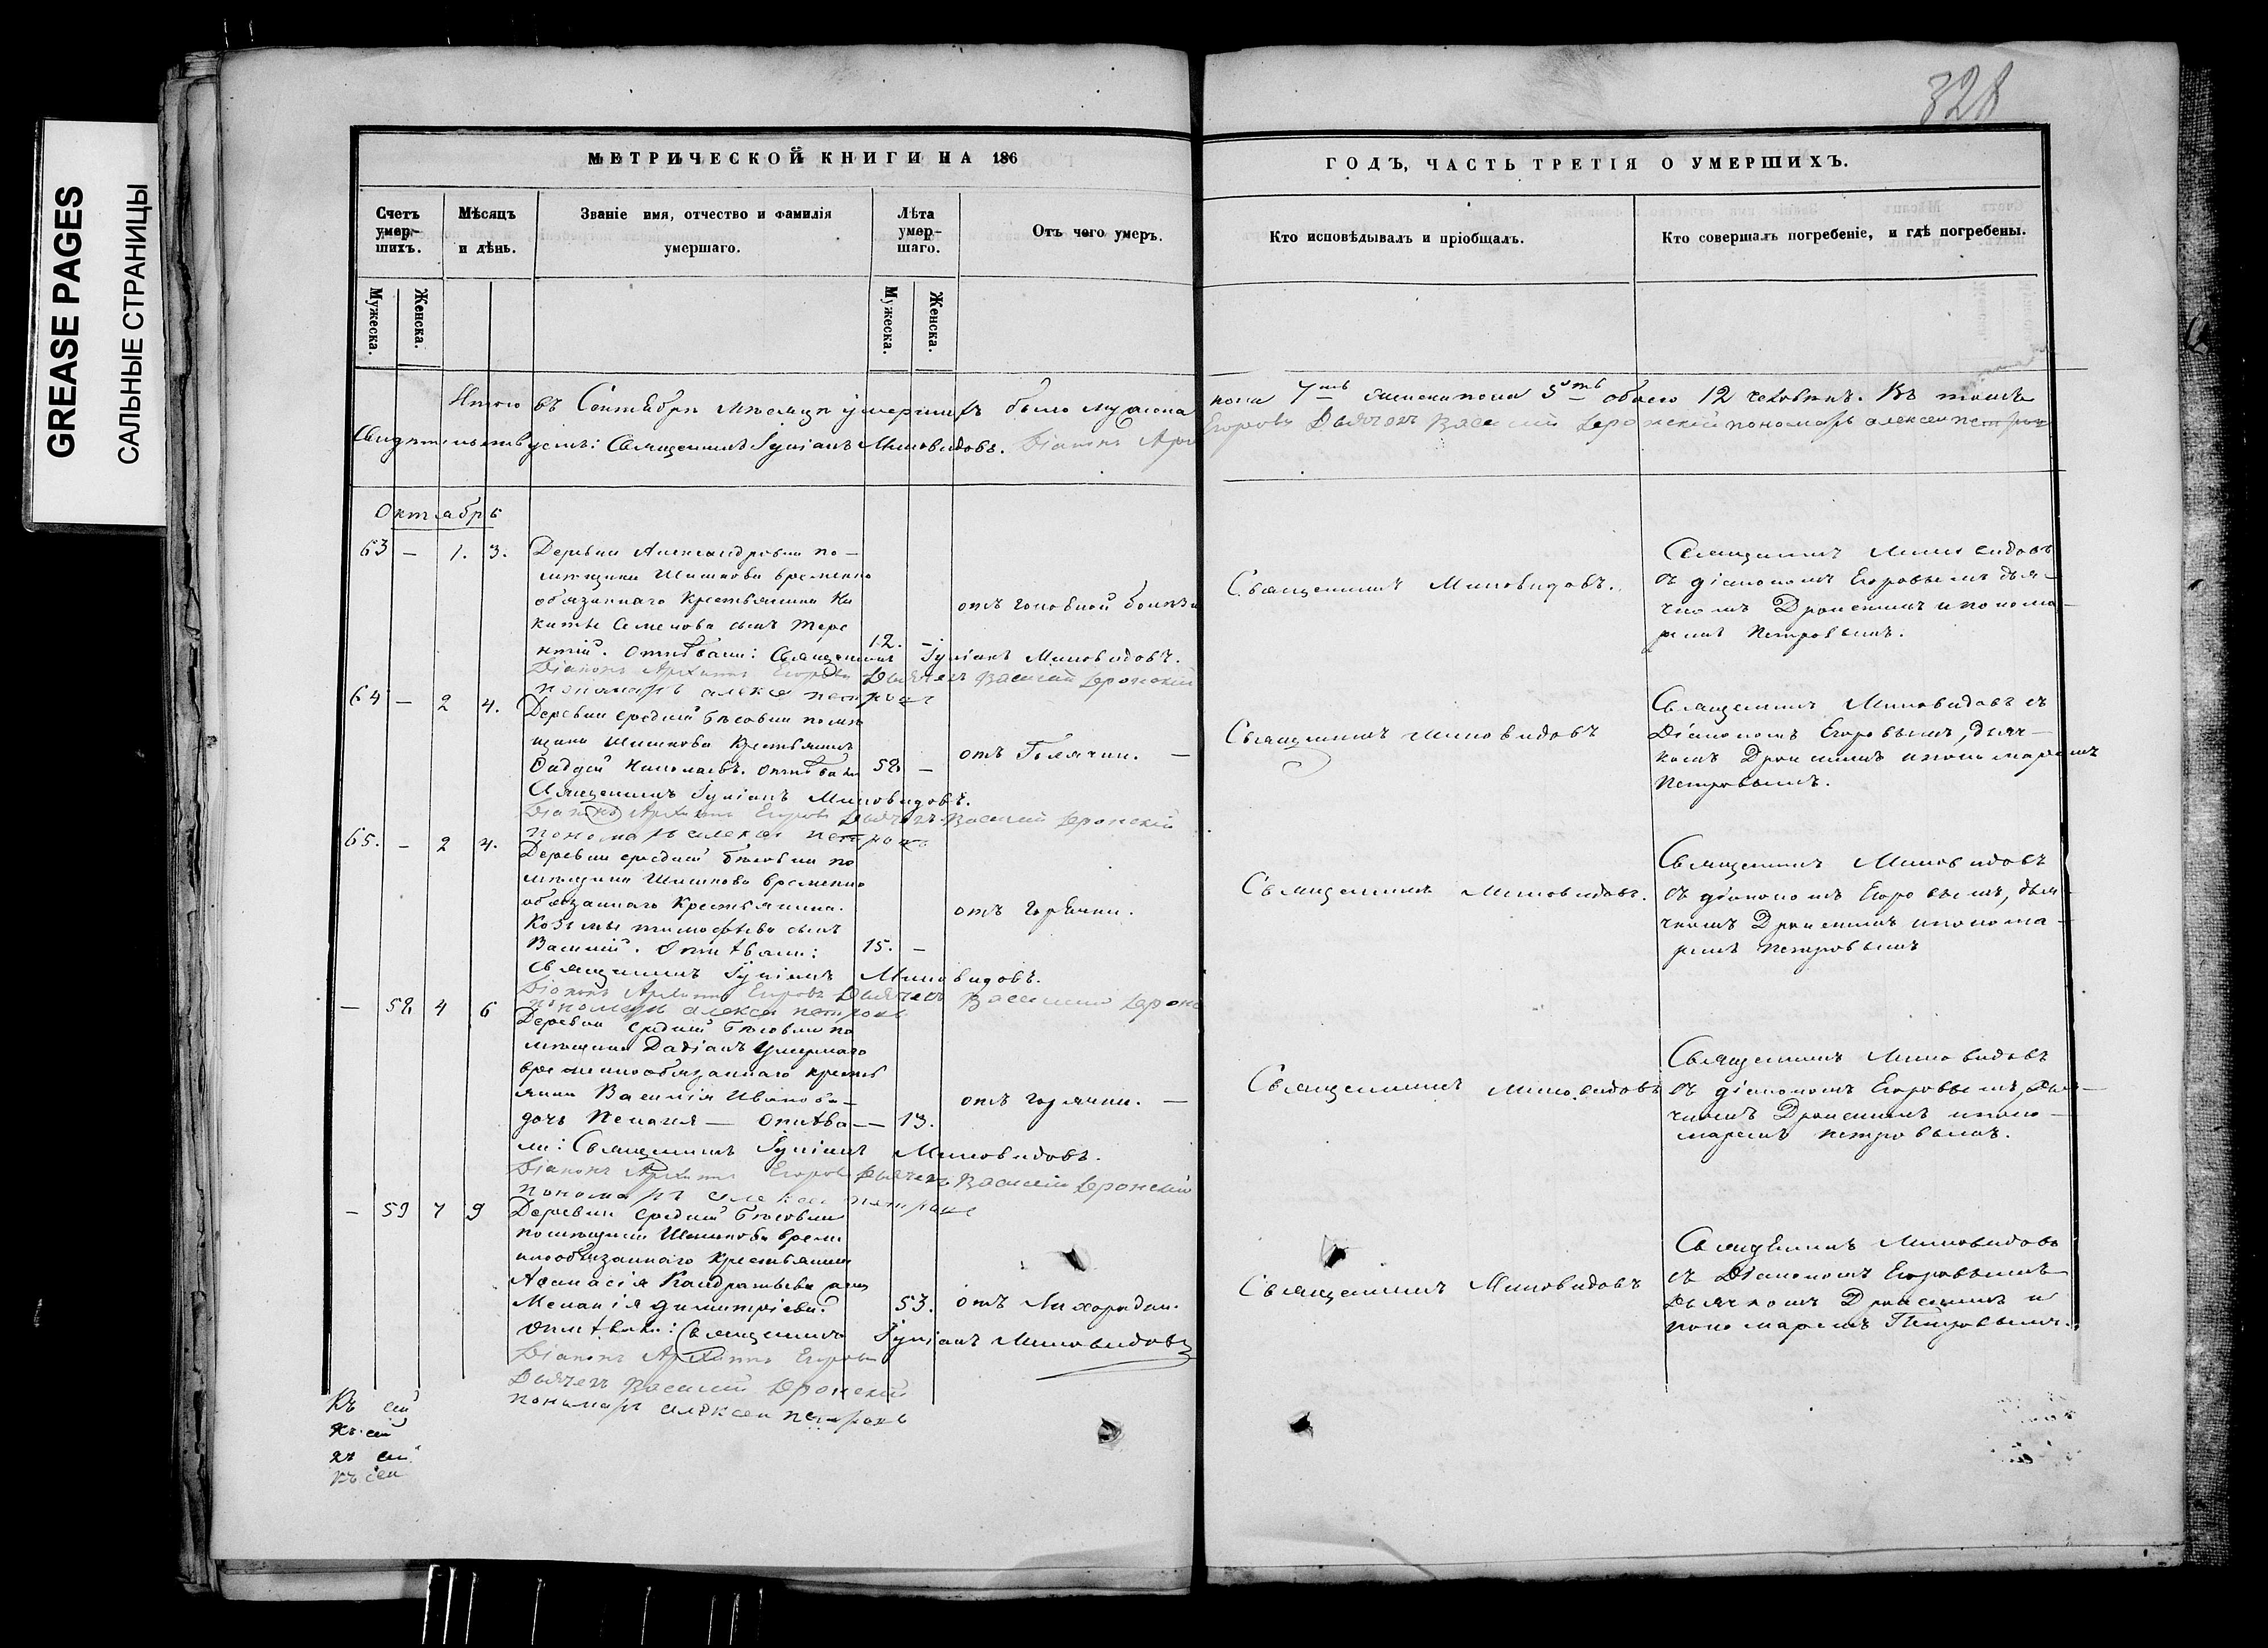 GREASE PAGES
САЛЬНЫЕ СТРАНИЦЫ
328
МЕТРИЧЕСКОЙ КНИГИ НА 186
ГОДЪ, ЧАСТЬ ТРЕТІЯ О УМЕРШИХЪ.
Счетъ умер-шихъ.
Мѣсяцъ и дѣнь.
Званіе имя, отчество и фамилія умершаго.
Лѣта умер-шаго.
Отъ чего умеръ.
Кто исповѣдывалъ и пріобщалъ.
Кто совершалъ погребеніе, и гдѣ погребены.
Мужеска.
Женска.
Мужеска.
Женска.
Итого въ Сентябрѣ мѣсяцѣ умершихъ было мужска пола 7мь женска пола 5ть обоего 12 человѣкъ. Въ томъ
Свидѣтельствуемъ: Священникъ Іуліанъ Миловидовъ. Діаконъ Архиппъ Егоровъ Дьячокъ Василий пономарь алексей петровъ
Октябрь
63 — 1. 3.
Деревни Александровки по-
мѣщика Шишкова временно
обязаннаго Крестьянина Ни
киты Семенова сынъ Тере
нтій. Отпѣвали: Священникъ Іуліанъ Миловидовъ.
12. —
отъ головной болѣзн
Діаконъ Архиппъ Егоровъ Дьячекъ Василий
пономарь алексей петровъ
Священникъ Миловидовъ.
Священникъ Миловидовъ
съ діакономъ Егоровымъ дья-
чкомъ и понома-
ремъ Петровымъ.
64 — 2 4.
Деревни средней помѣ
щика Шишкова Крестьянинъ
Фадей Николаевъ. Отпѣвали
58 —
отъ Горячки. —
Священникъ Іуліанъ Миловидовъ.
Діаконъ Архиппъ Егоровъ Дьячекъ Василий
пономарь алексей петровъ
Священникъ Миловидовъ
Священникъ Миловидовъ съ
Діакономъ Егоровымъ, дьяч-
комъ и пономаремъ
Петровымъ.
65. — 2 4.
Деревни средней по
мѣщика Шишкова временно
обязаннаго Крестьянина.
Козьмы тимофѣева сынъ
Василій. Отпѣвали:
15. —
отъ горячки.
Священникъ Іуліанъ Миловидовъ.
Діаконъ Архиппъ Егоровъ Дьячекъ Василий
пономарь алексей петровъ
Священникъ Миловидовъ.
Священникъ Миловидовъ
съ діакономъ Егоровымъ, дья-
чкомъ и понома-
ремъ петровымъ
— 58 4 6
Деревни средней по
мѣщика Дадіанъ умершаго
временнообязаннаго кресть
янина Василія Иванова-
дочь Пелагея — Отпѣва-
ли: Священникъ Іуліанъ Миловидовъ.
— 13.
отъ горячки. —
Діаконъ Архиппъ Егоровъ Дьячекъ Василий
пономарь алексей петровъ
Священникъ Миловидовъ
Священникъ Миловидовъ
съ діакономъ Егоровымъ, дья-
чкомъ и поно-
маремъ петровымъ.
— 59 7 9
Деревни средней
помѣщика Шишкова време
ннообязаннаго Крестьянина
Аѳанасія Кандратьева жена
Меланія димитріева.
53.
отъ Лихорадки.
Отпѣвали: Священникъ Іуліанъ Миловидовъ
Діаконъ Архиппъ Егоровъ
Дьячекъ Василий
пономарь алексеи петровъ
Священникъ Миловидовъ
Священникъ Миловидовъ
съ Діакономъ Егоровымъ
Дьячкомъ и
пономаремъ Петровымъ.
Къ сей
Къ сей
къ сей
къ сеи